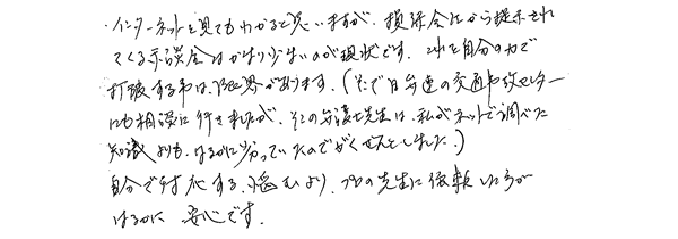 ・インターネットを見てもわかると思いますが、損保会社から提示され
てくる示談金はかなり少ないのが現状です。これを自分の力で
打破するには、限界があります。(なので日弁連の交通事故センター
にも相談に行きましたが、そこの弁護士先生は、私がネットで調べた
知識よりも、はるかに劣っていたのでがくぜんとしました。)
自分で対応する、悩むより、プロの先生に依頼した方が
はるかに安心です。